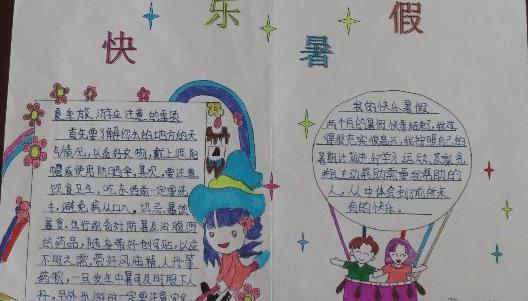 快乐
暑假
夏季旅游应注意的事项
首先要了解你去的地方的天
气情况,以备好衣物,戴上遮阳
帽或使用防晒伞,其次,要注意
饮食卫生,吃东西前一定要洗
手,避免病从口入。切忌暴饮
暴食。出行前备好防暑及治腹泻
的药品,随身带好创可贴,以应
不时之需,带好风油精人丹等
药物,一旦发生中暑可及时服下人
丹。另外出游时一定要注意安全
我的快乐暑假
两个月的暑假快要结束了,我觉
得很充实很高兴,我按照自己的
暑期计划进行学习运动
主动帮助需要我帮助的
人,从中体会到了前所未
有的快乐。